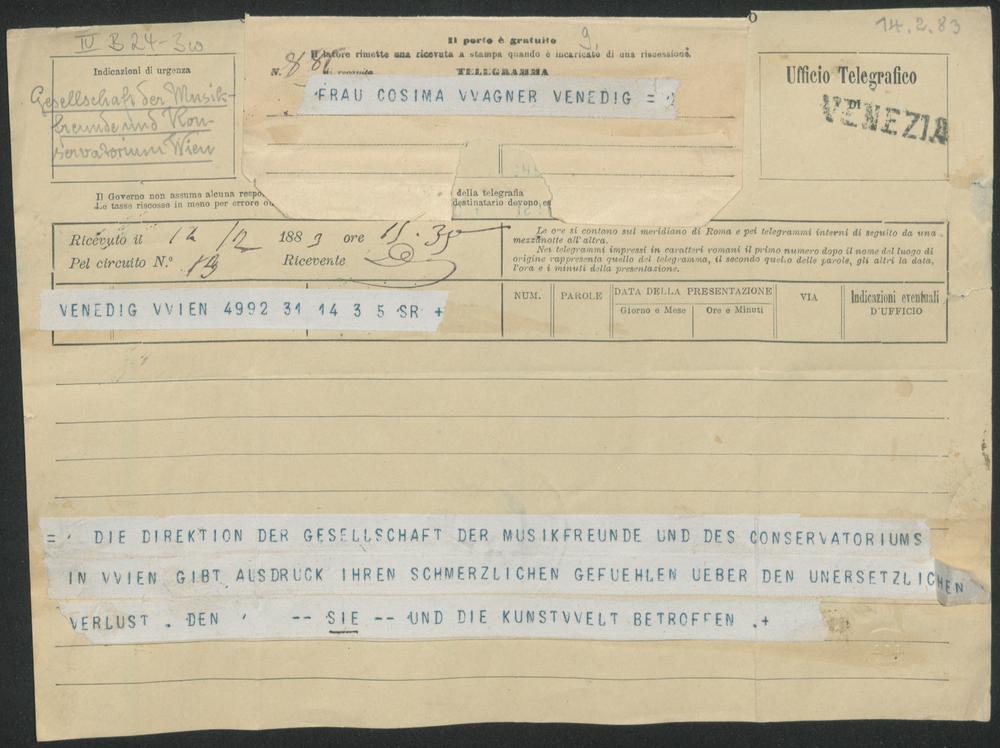 IV B 24-3w
14.2.83
Indicazioni di urgenza
Gesellschaft der Musik-
freunde und Kon-
servatorium Wien
9.
Il porto è gratuito
Il latore rimette una ricevuta a stampa quando è incaricato di una riscossione.
N. TELEGRAMMA
FRAU COSIMA VVAGNER VENEDIG =
Ufficio Telegrafico
DI
VENEZIA
Il Governo non assume alcuna respo
della telegrafia
Le tasse riscosse in meno per errore
destinatario devono es
Ricevuto il 14/2 1883 ore 15.35
Pel circuito N.° 19 Ricevente
Le ore si contano sul meridiano di Roma e pei telegrammi interni di seguito da una
mezzanotte all'altra.
Nei telegrammi impressi in caratteri romani il primo numero dopo il nome del luogo di
origine rappresenta quello del telegramma, il secondo quello delle parole, gli altri la data,
l'ora e i minuti della presentazione.
VENEDIG VVIEN 4992 31 14 3 5 SR +
NUM. PAROLE DATA DELLA PRESENTAZIONE VIA Indicazioni eventuali
Giorno e Mese Ore e Minuti D'UFFICIO
= DIE DIREKTION DER GESELLSCHAFT DER MUSIKFREUNDE UND DES CONSERVATORIUMS
IN VVIEN GIBT AUSDRUCK IHREN SCHMERZLICHEN GEFUEHLEN UEBER DEN UNERSETZLICHEN
VERLUST . DEN ' -- SIE -- UND DIE KUNSTVVELT BETROFFEN .+